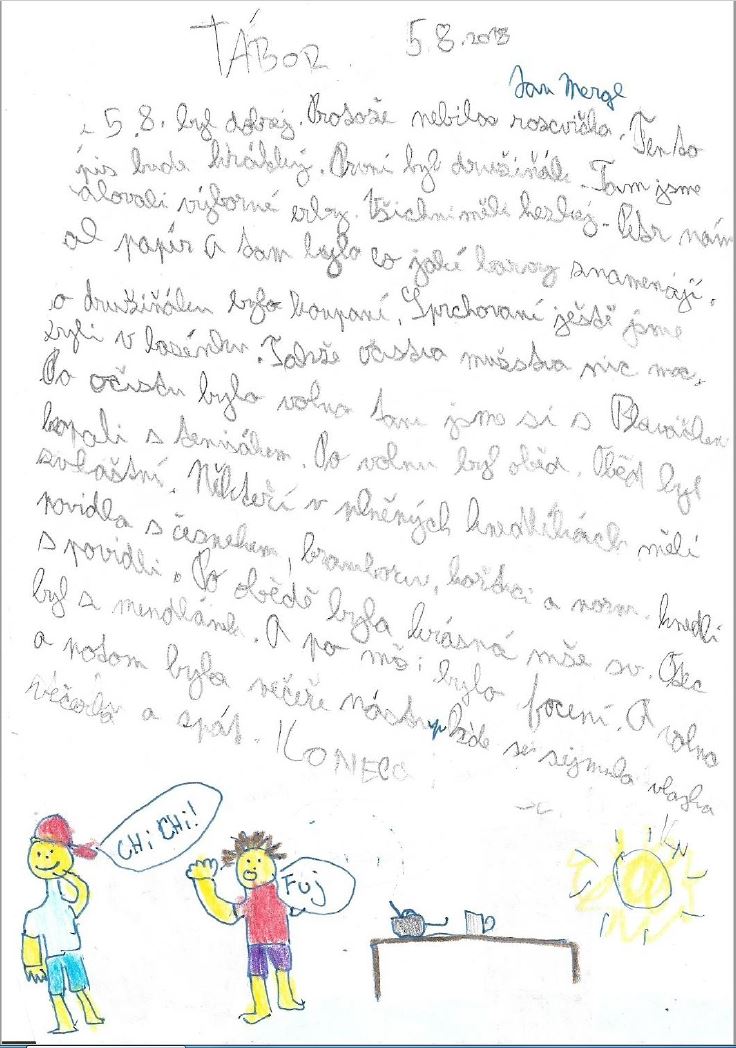 TÁBOR 5.8.2018
Jan Mergl
5.8. byl dobrej. Protože nebilos roscvička. Tento
pis bude krátkej. První byl družiňák. Tam jsme
alovali výborné erby. Všichni měli heskej. Petr nám
al papír a tam bylo co jaké barvy znamenají.
o družiňáku bylo koupaní. Sprchovaní ještě jsme
byli v basénku. Takže očista mušstva nic moc.
Po očistu bylo volno tam jsme si s Blaváčkem
kopali s tenisákem. Po volnu byl oběd. Oběd byl
svláštní. Někteří v plněných knedlíkách měli
povidla s česnekem, bramborou, hořčici a norm. knedlí
s povidli. Po obědě byla krásná mše sv. Otec
byl s mendlánek. A po mši bylo focení. A volno
a potom byla večeře nástup kde se sejmula vlajka
večerka a spát. KONEC
CHi CHi!
Fuj